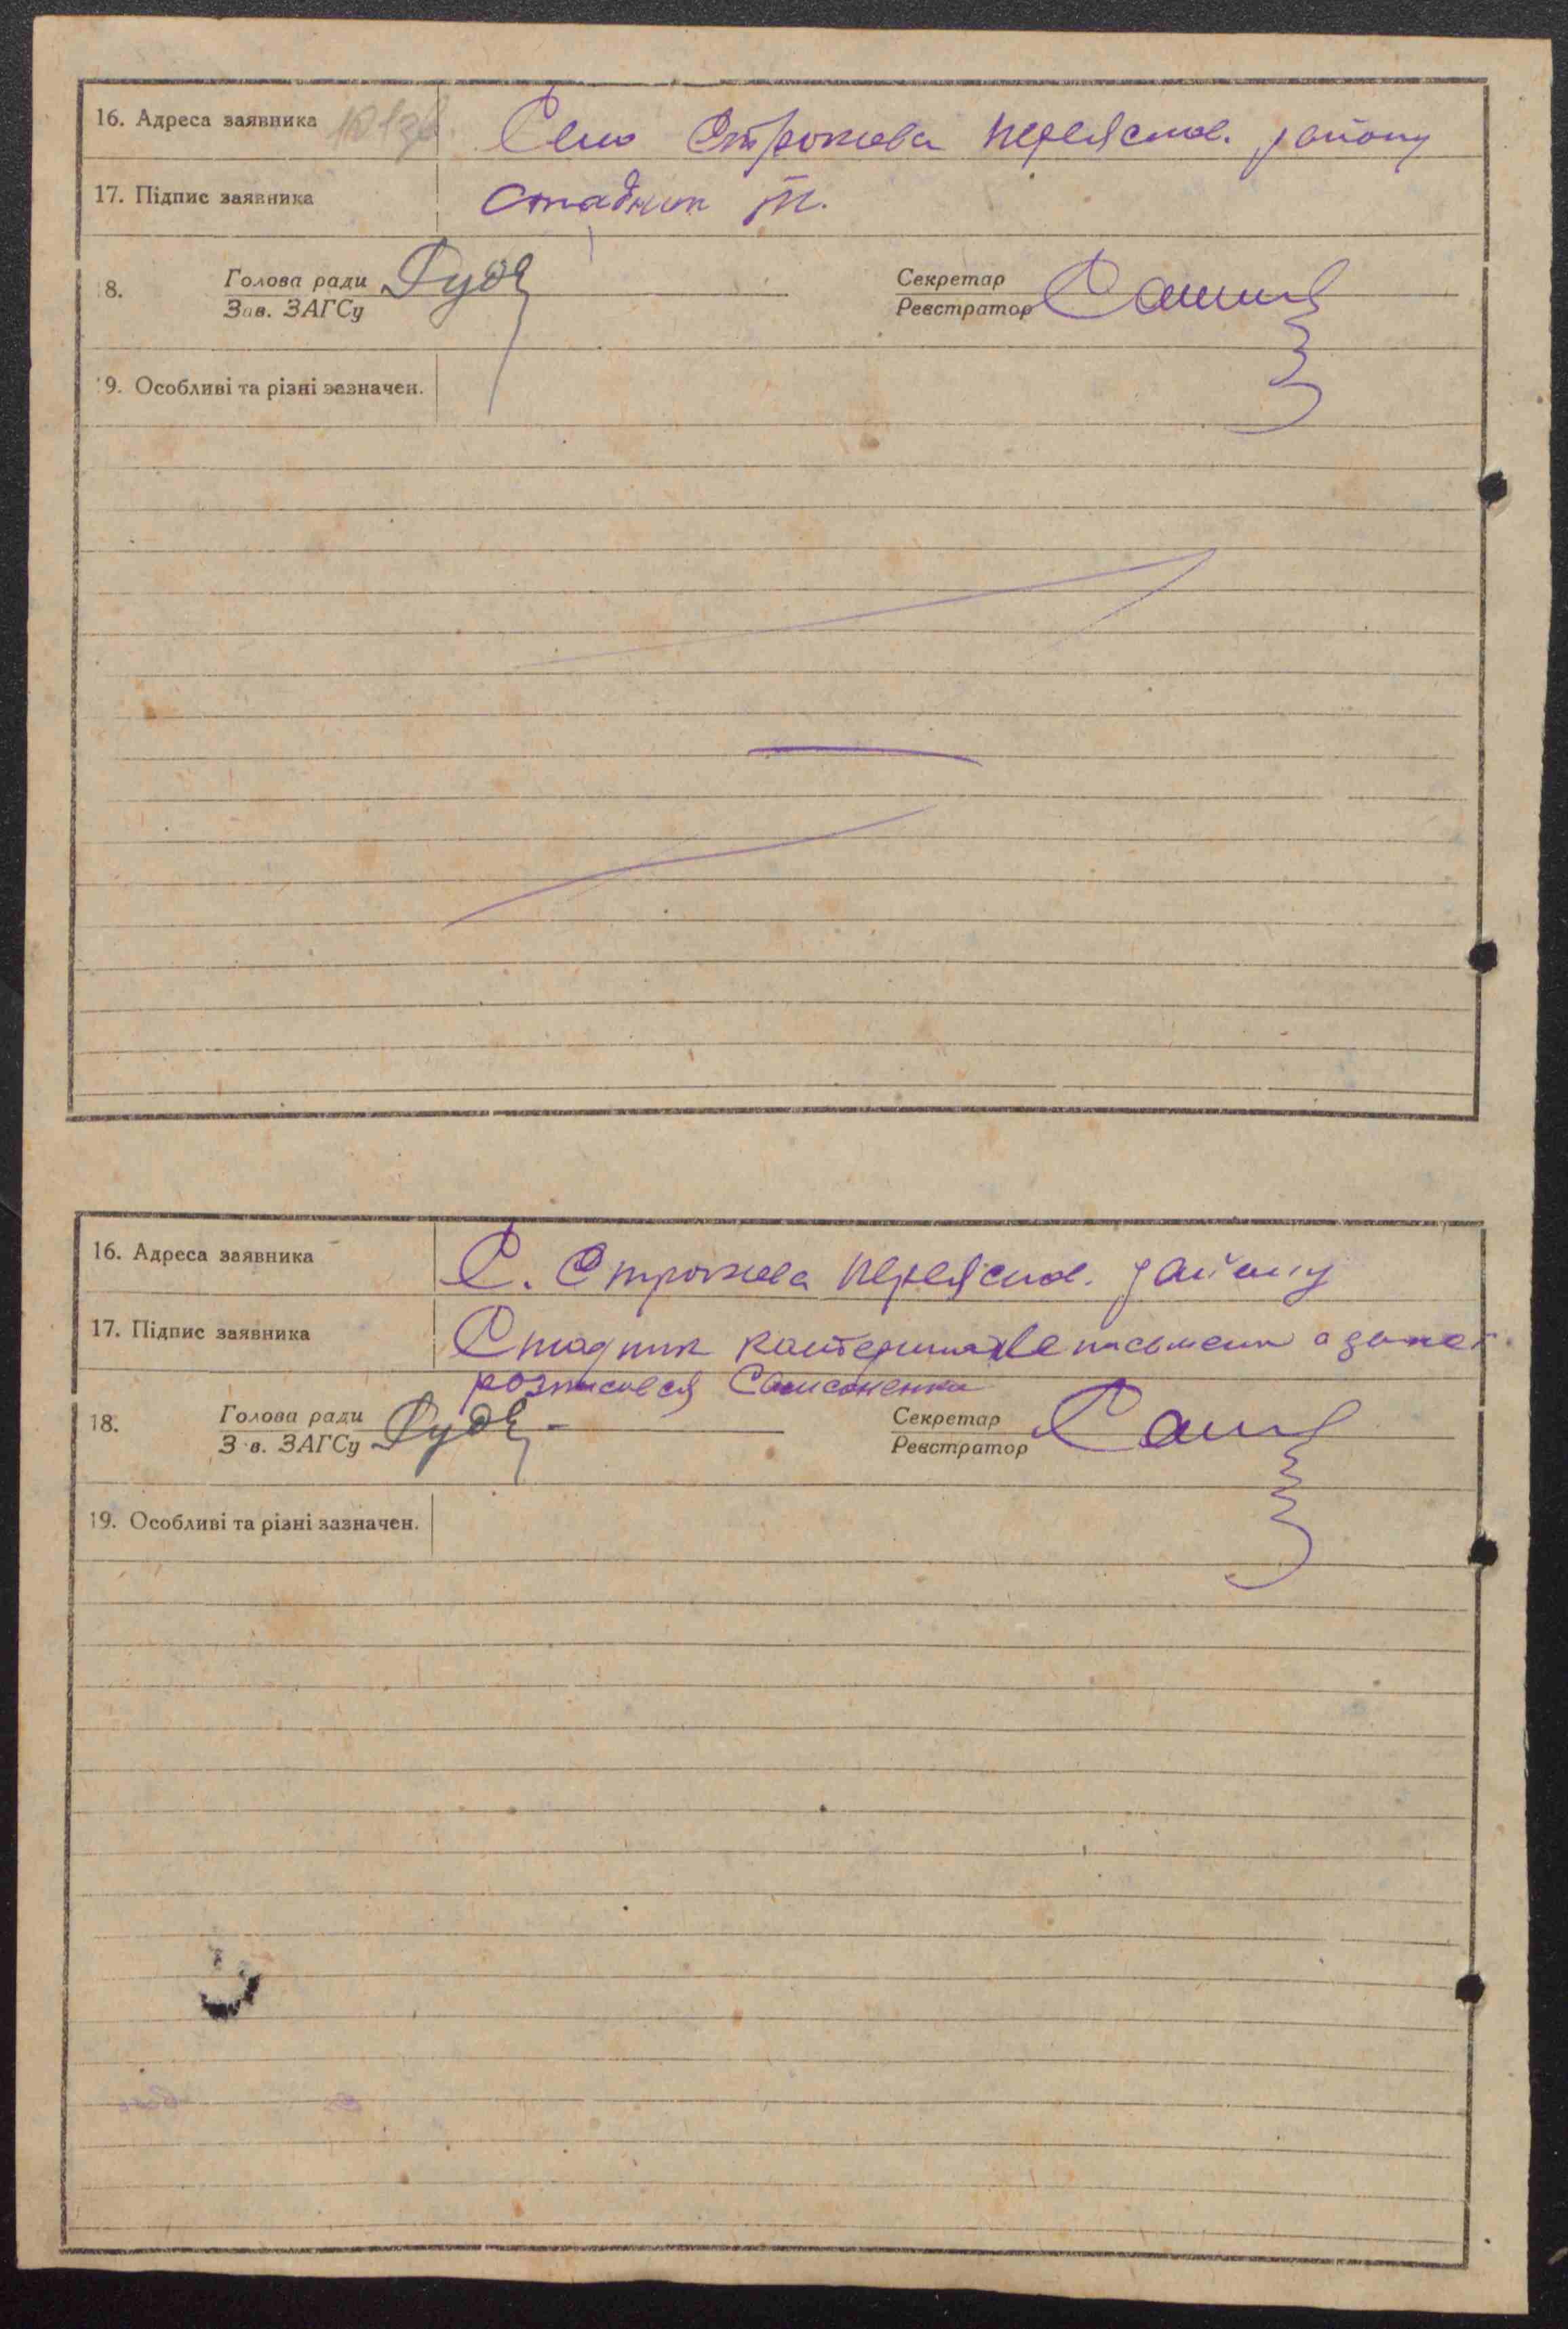 16. Адреса заявника Село Строкова Переяслов. району
17. Підпис заявника Стадник Т.
8. Голова ради Руде Секретар
Зав. ЗАГСу Реєстратор
9. Особливі та різні зазначен.
16. Адреса заявника С. Строкова Переяслов. району
17. Підпис заявника Стадник Катерина неписьмена а за неї
розписався Самсоненко
18. Голова ради Руде Секретар
З в. ЗАГСу Реєстратор
19. Особливі та різні зазначен.